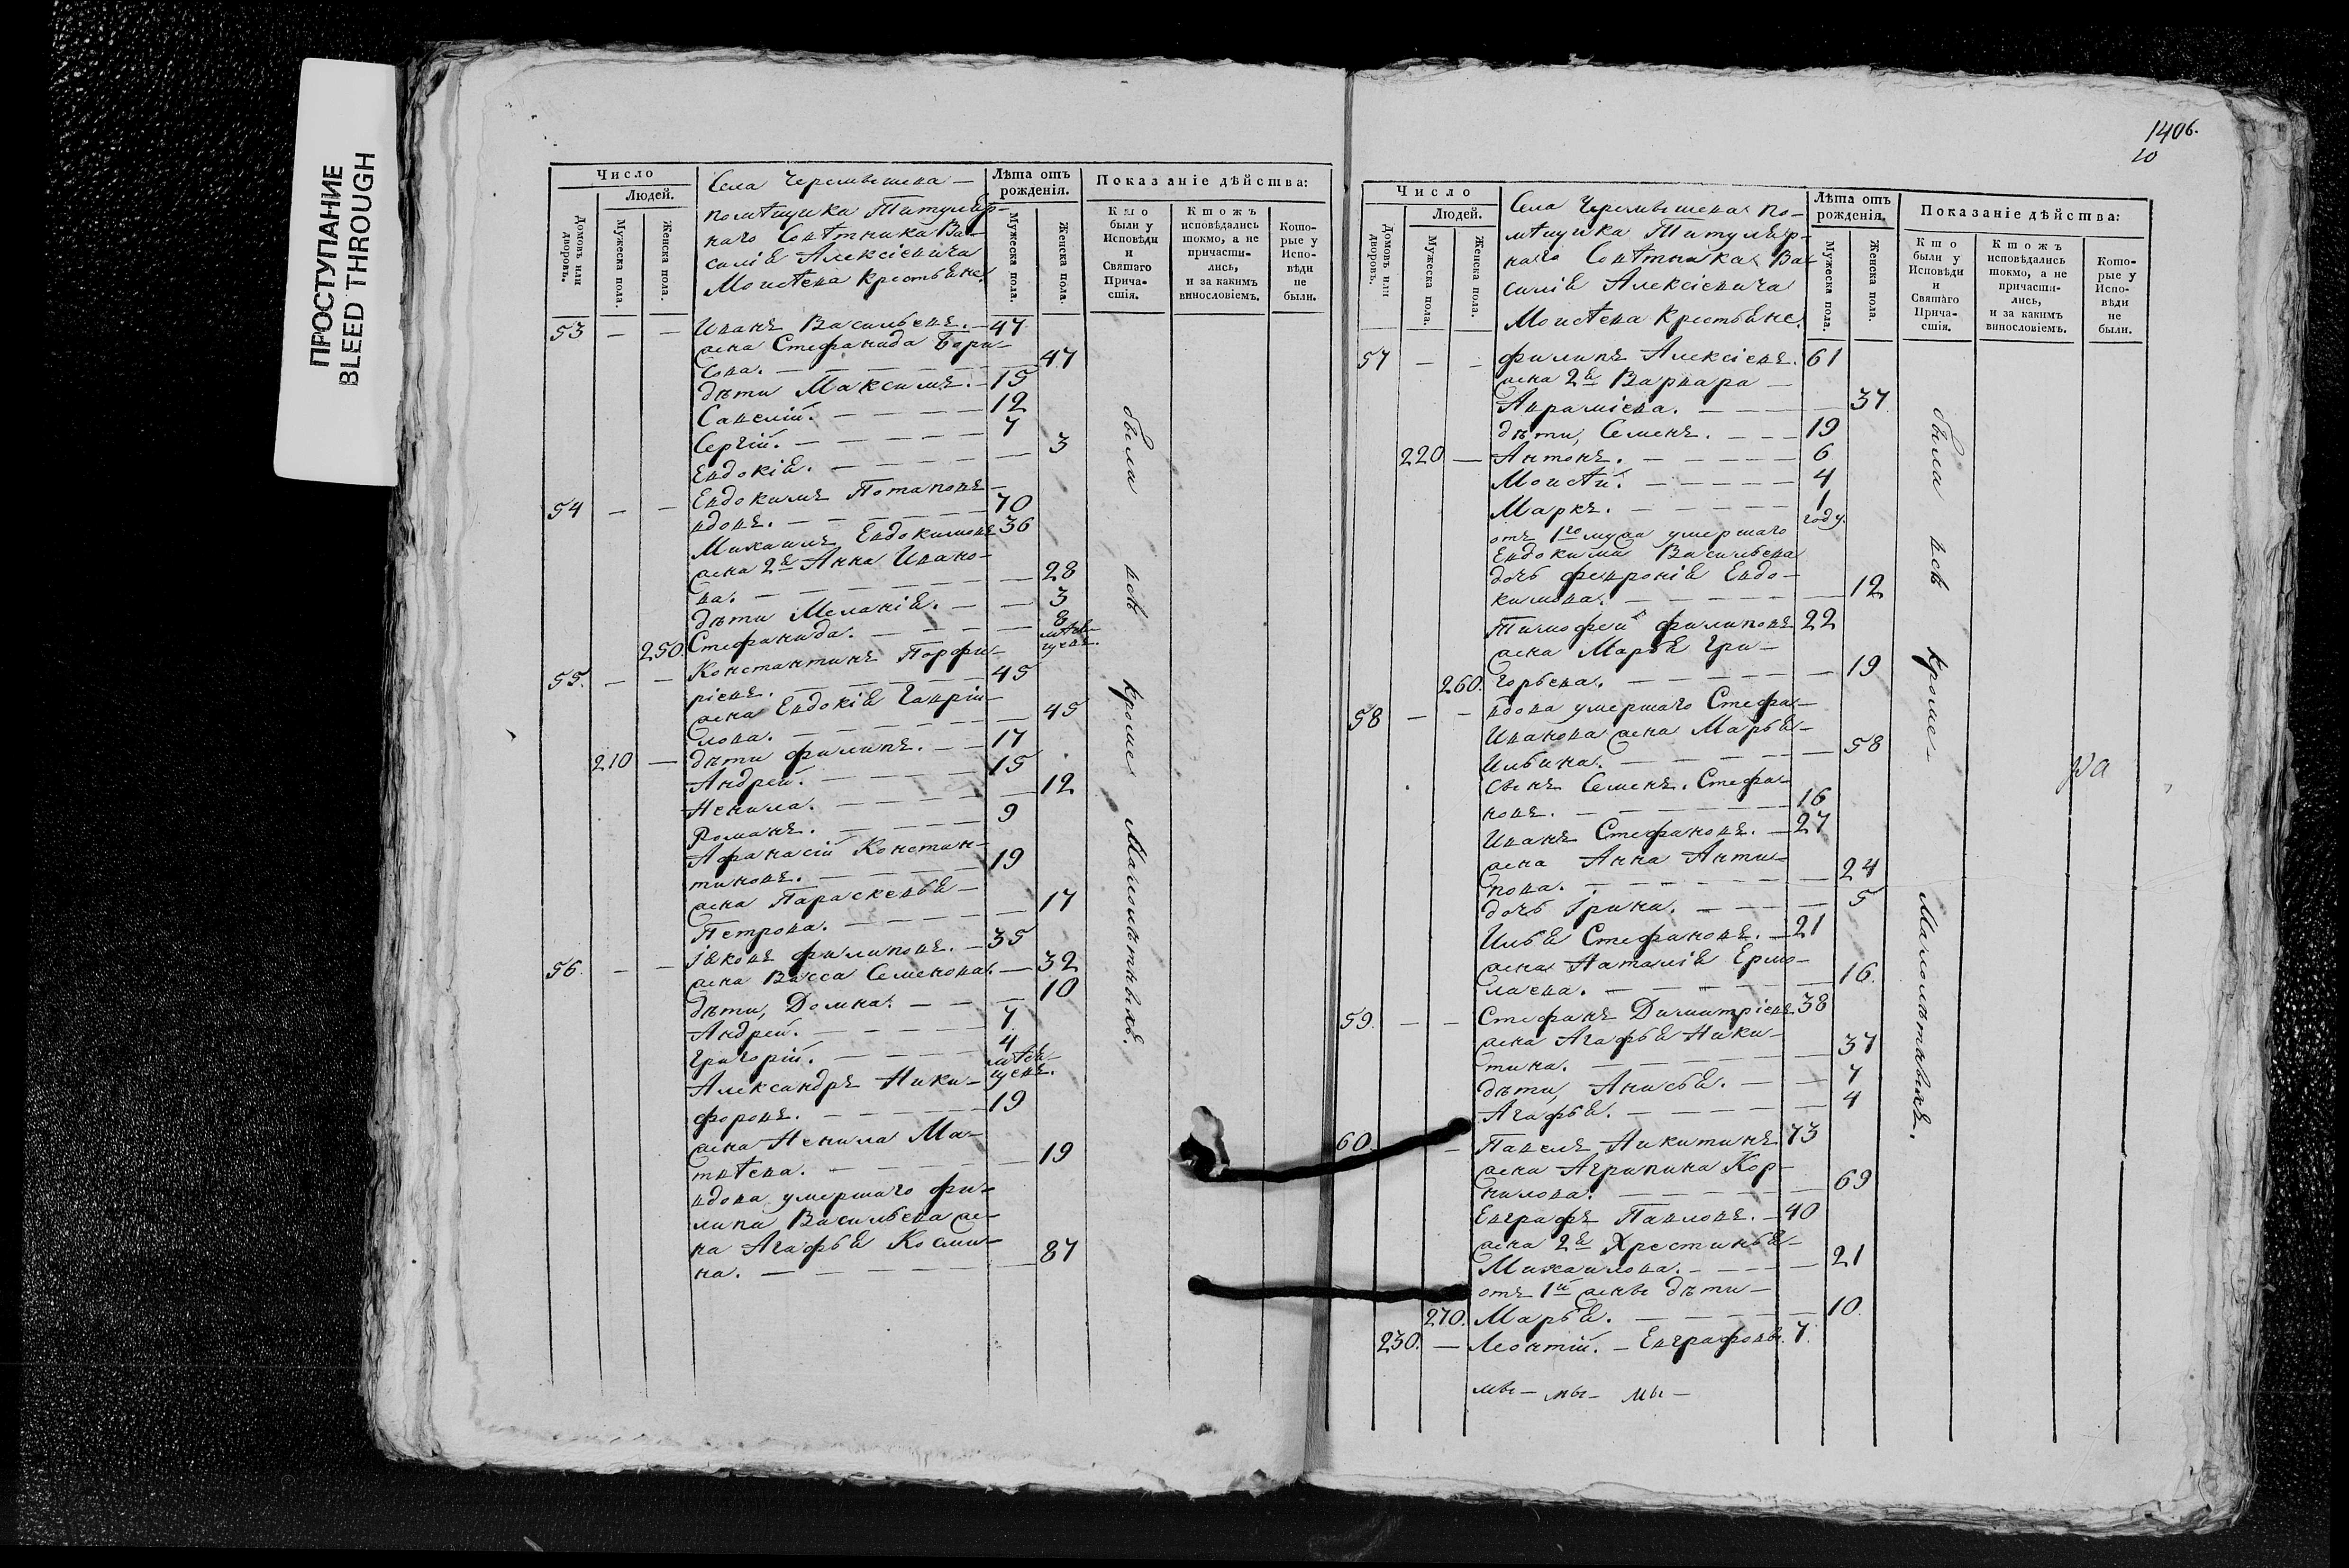 ПРОСТУПАНИЕ
BLEED THROUGH
Число
Людей.
Домовъ или дворовъ.
Мужеска пола.
Женска пола.
Села
помѣщика Титуляр-
наго Совѣтника Ва-
силія Алексіевича
Моисѣева крестьяне.
Лѣта отъ рожденія.
Мужеска пола.
Женска пола.
Показаніе дѣйства:
Кто были у Исповѣди и Святаго Прича-стія.
Ктожъ исповѣдались токмо, а не причасти-лись, и за какимъ винословіемъ.
Кото-рые у Испо-вѣди не были.
53 — — Иванъ Васильевъ. — 47
жена Стефанида Бори-
сова. — 47
дѣти Максимъ. — 15
Савелій. — 12
Сергій. — 7
Евдокія. — 3
54 — — Евдокимъ Потаповъ
вдовъ. — 70
Михаилъ Евдокимовъ 36
жена 2я Анна Ивано-
ва. — 28
дѣти Меланія. — 3
250. Стефанида. — 8 мѣся-
цевъ.
55. — — Константинъ Порфи-
ріевъ. — 45
жена Евдокія Гаврии-
лова. — 45
210 — дѣти Филипъ. — 17
Андрей. — 15
Ненила. — 12
Романъ. — 9
Афанасій Констан-
тиновъ. — 19
жена Параскевья
Петрова. — 17
56. — — Іаковъ Филиповъ. — 35
жена Васса Семенова. — 32
дѣти, Домна. — 10
Андрей. — 7
Григорій. — 4
мѣся-
Александръ Ники- цевъ.
форовъ. — 19
жена Ненила Ма-
твѣева. — 19
вдова умершаго Фи-
липа Васильева же-
на Агафья Косми-
на. — 87
были всѣ кромѣ Малолѣтныхъ.
1406.
10
Число
Людей.
Домовъ или дворовъ.
Мужеска пола.
Женска пола.
Села по-
мѣщика Титуляр-
наго Совѣтника Ва-
силія Алексіевича
Моисѣева крестьяне.
Лѣта отъ рожденія.
Мужеска пола.
Женска пола.
Показаніе дѣйства:
Кто были у Исповѣди и Святаго Прича-стія.
Ктожъ исповѣдались токмо, а не причасти-лись, и за какимъ винословіемъ.
Кото-рые у Испо-вѣди не были.
57 — — Филипъ Алексіевъ. 61
жена 2я Варвара
Авраміева. — 37
дѣти, Семенъ. — 19
220 — Антонъ. — 6
Моисѣй. — 4
Маркъ. — 1
году.
отъ 1го мужа умершаго
Евдокима Васильева
дочь Февронія Евдо-
кимова. — 12
Тимофей Филиповъ 22
жена Марья Гри-
260. горьева. — 19
58 — — вдова умершаго Стефа-
Иванова жена Марья
Ильина. — 58
сынъ Семенъ Стефа-
новъ. — 16
Иванъ Стефановъ. — 27
жена Анна Анти-
пова. — 24
дочь Ірина. — 5
Илья Стефановъ. — 21
жена Наталія Ермо-
лаева. — 16.
59. — — Стефанъ Димитріевъ 38
жена Агафья Ники-
тина. — 37
дѣти, Анисья. — 7
Агафья. — 4
60. — Павелъ Никитинъ 73
жена Агрипина Кор-
нилова. — 69
Евграфъ Павловъ. — 40
жена 2я Христинья
Михаилова. — 21
отъ 1й жены дѣти
270. Марья. — 10.
230. — Леонтій. — Евграфовы. 7.
мы — мы — мы —
были всѣ кромѣ Малолѣтныхъ.